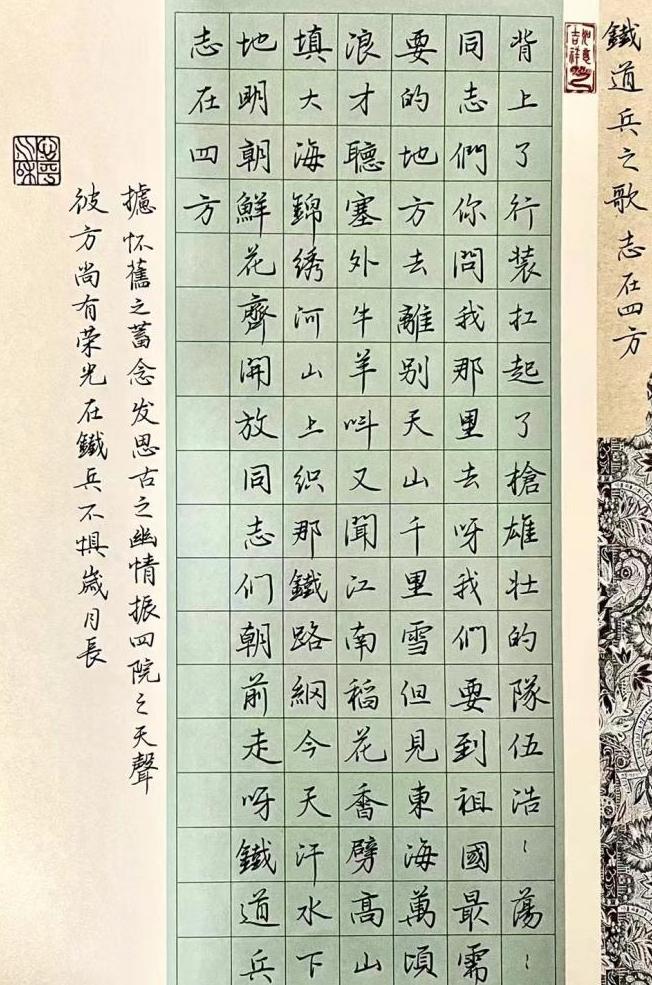 鐵道兵之歌志在四方
如意吉祥
背上了行装扛起了槍雄壮的隊伍浩〻蕩〻
同志們你問我那里去呀我们要到祖國最需
要的地方去離别天山千里雪但見東海萬頃
浪才聽塞外牛羊呌又聞江南稻花香劈高山
填大海錦绣河山上织那鐵路網今天汗水下
地明朝鮮花齊開放同志们朝前走呀鐵道兵
志在四方
攄怀舊之蓄念发思古之幽情振四院之天聲
彼方尚有荣光在鐵兵不惧歲月長